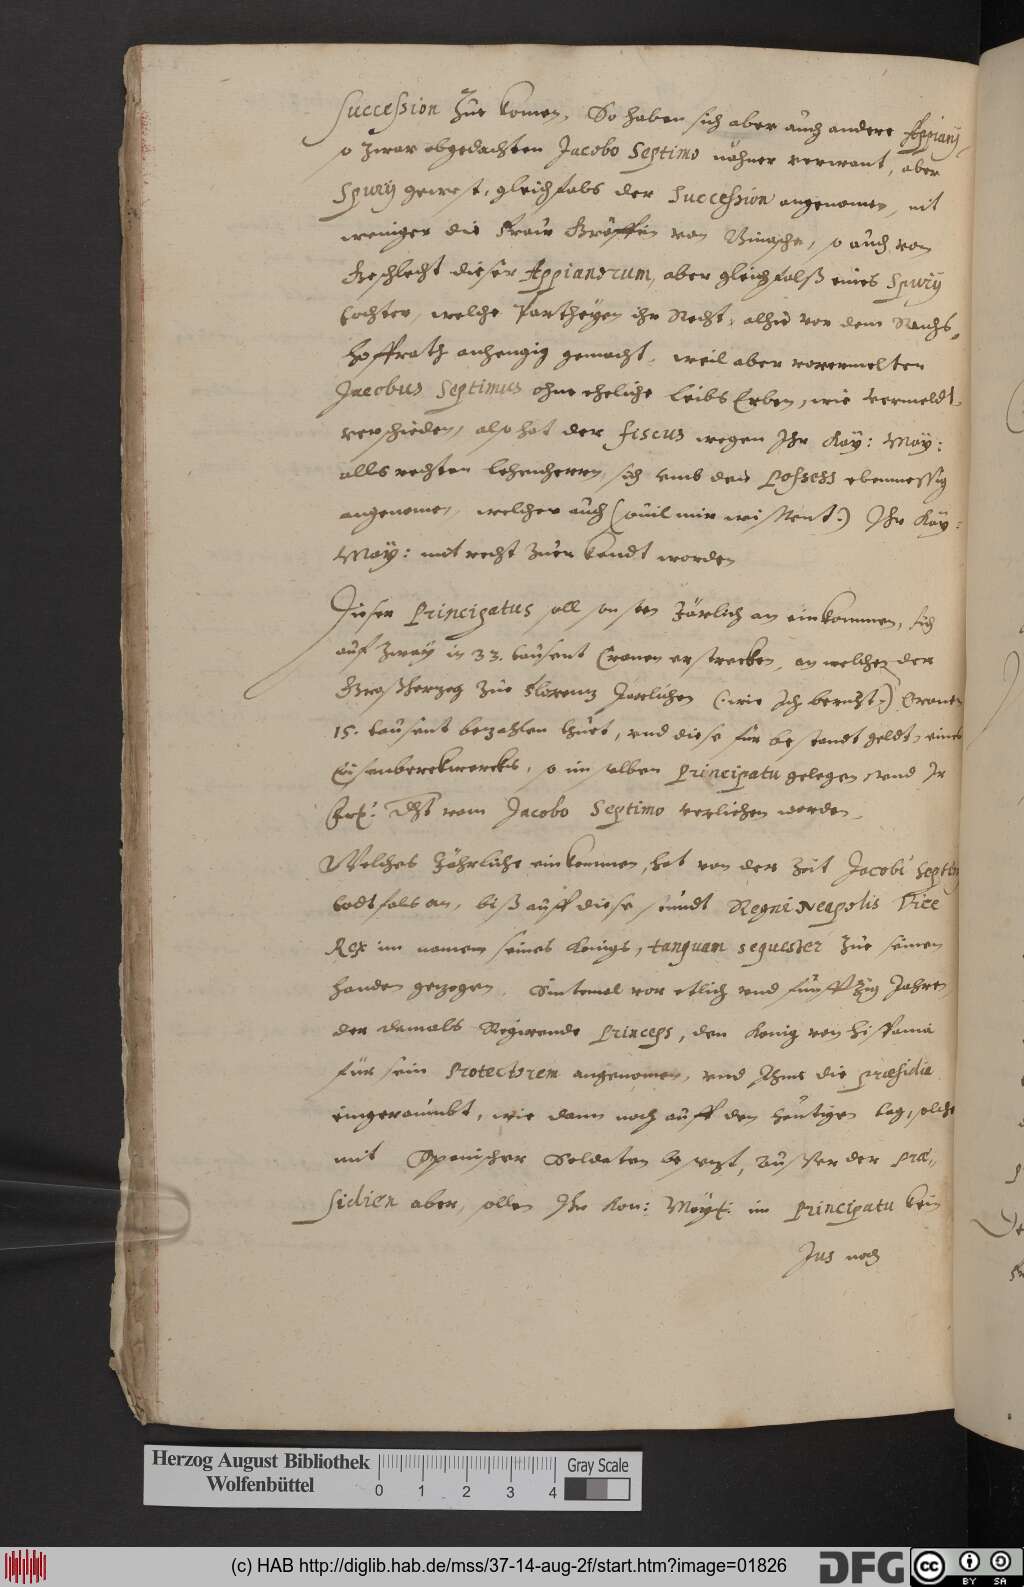 Succession Zue komen, So haben sich aber auch andere Appianij
so zwar obgedachten Jacobo Septimo näher verwant, aber
Spurij gewest, gleichfals der Succession angenomen, nit
weniger die Fraw Gräffin von Binasche, so auch von
Geschlecht dieser Appianorum, aber gleichfalß eines Spurij
tochter, welche Partheyen ihr Recht, alhie vor dem Reichs
hoffrath anhengig gemacht, weil aber vorermelten
Jacobus Septimus ohne eheliche Leibs Erben, wie vermeldt
verschieden, also hat der fiscus wegen Ihr Kay: May:
alls rechten lehenherrn, sich umb den Possess ebenmessig
angenomen, welcher auch (souil mir wissent:) Ihr Kay:
May: mit recht zuerkandt worden
Dieser Principatus soll sonsten Järlich an einkommen, sich
auf zway in 33. tausent Cronen erstrecken, an welchen der
Großhertzog zue Florentz Järlichen (:wie Ich bericht:) Cronen
15. tausent bezahlen thuet, vnd diese für bestandt geldt, eines
Eisenberckwercks, so im selben Principatu gelegen, vnd Ir
Frl: Dht vom Jacobo Septimo verlichen worden.
Welches Jährliche einkommen, hat von der Zeit Jacobi Septimi
todtfals an, biß auff diese stundt Regni Neapolis Vice
Rex im namen seines Königs, tanquam sequester zue seinen
handen gezogen, Sintemal vor etlich vnd fünffzig Jahren
der damals Regirende Princeps, den König von Hispania
für sein Protectorem angenomen, vnd Ihme die præsidia
eingeraumbt, wie dann noch auff den heutigen tag, solche
mit Spanischer Soldaten besetzt, ausser der præ-
sidien aber, sollen Ihr Kön: Mayt: im Principatu kein
Jus noch
Herzog August Bibliothek
Wolfenbüttel
0 1 2 3 4
Gray Scale
(c) HAB http://diglib.hab.de/mss/37-14-aug-2f/start.htm?image=01826
DFG
cc BY SA